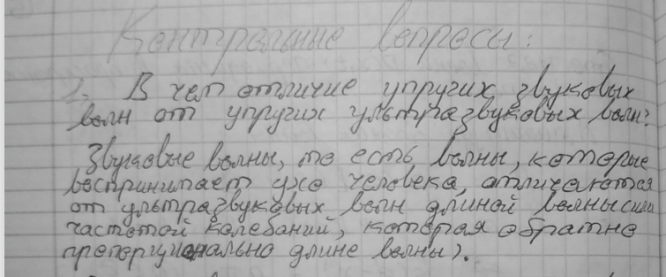 Контрольные вопросы:
1. В чем отличие упругих звуковых
волн от упругих ультразвуковых волн?
Звуковые волны, то есть волны, которые
воспринимает ухо человека, отличаются
от ультразвуковых волн длиной волны(или
частотой колебаний, которая обратно
пропорциональна длине волны).